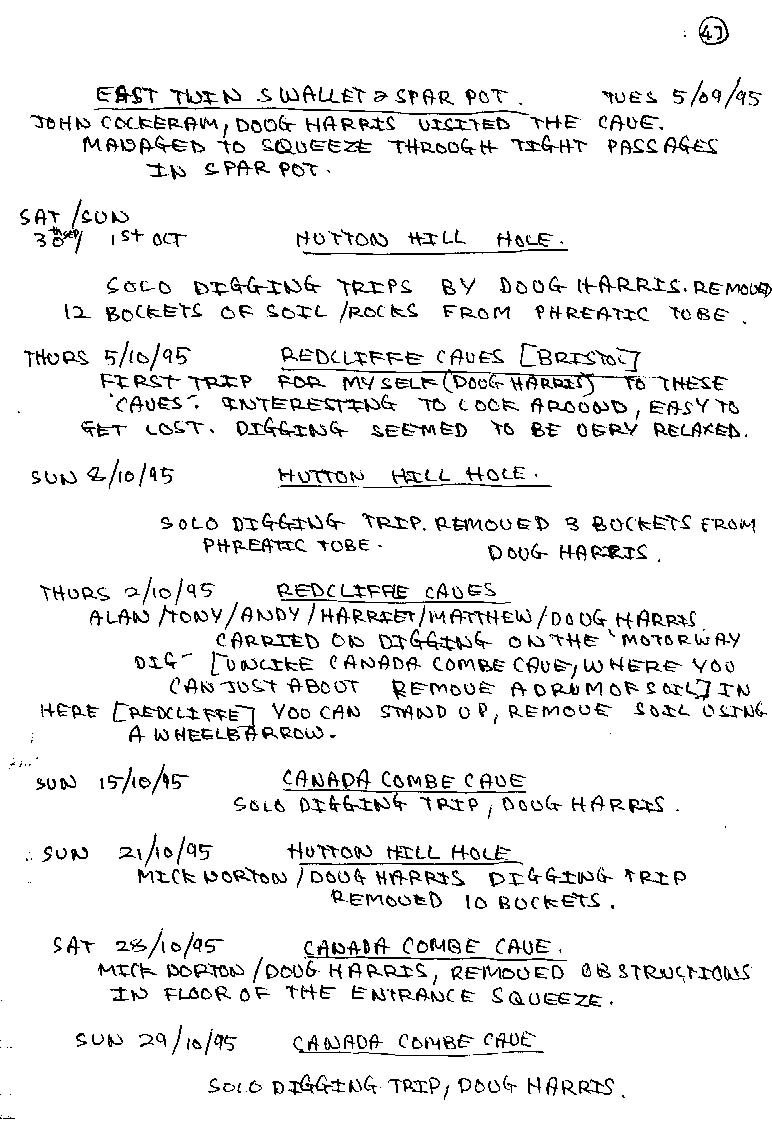 47
EAST TWIN SWALLET & SPAR POT. TUES 5/09/95
JOHN COCKERAM, DOUG HARRIS VISITED THE CAVE.
MANAGED TO SQUEEZE THROUGH TIGHT PASSAGES
IN SPAR POT.
SAT/SUN
30th SEP/ 1st OCT HUTTON HILL HOLE.
SOLO DIGGING TRIPS BY DOUG HARRIS. REMOVED
12 BUCKETS OF SOIL/ROCKS FROM PHREATIC TUBE.
THURS 5/10/95 REDCLIFFE CAVES [BRISTOL]
FIRST TRIP FOR MYSELF (DOUG HARRIS) TO THESE
"CAVES". INTERESTING TO LOOK AROUND, EASY TO
GET LOST. DIGGING SEEMED TO BE VERY RELAXED.
SUN /10/95 HUTTON HILL HOLE.
SOLO DIGGING TRIP. REMOVED 3 BUCKETS FROM
PHREATIC TUBE. DOUG HARRIS.
THURS 2/10/95 REDCLIFFE CAVES
ALAN/TONY/ANDY/HARRIET/MATTHEW/DOUG HARRIS
CARRIED ON DIGGING ON THE "MOTORWAY
DIG" [UNLIKE CANADA COMBE CAVE, WHERE YOU
CAN JUST ABOUT REMOVE A DRUM OF SOIL] IN
HERE [REDCLIFFE] YOU CAN STAND UP, REMOVE SOIL USING
A WHEELBARROW.
SUN 15/10/95 CANADA COMBE CAVE
SOLO DIGGING TRIP, DOUG HARRIS.
SUN 21/10/95 HUTTON HILL HOLE
MICK NORTON/DOUG HARRIS DIGGING TRIP
REMOVED 10 BUCKETS.
SAT 28/10/95 CANADA COMBE CAVE.
MICK NORTON/DOUG HARRIS, REMOVED OBSTRUCTIONS
IN FLOOR OF THE ENTRANCE SQUEEZE.
SUN 29/10/95 CANADA COMBE CAVE
SOLO DIGGING TRIP, DOUG HARRIS.